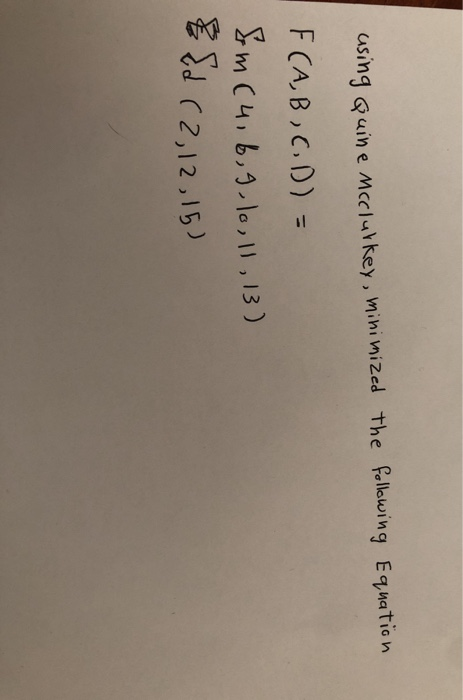 using Quine Mcclurkey, minimized the following Equation
F(A,B,C,D) =
Σm(4,6,9,10,11,13)
Σd(2,12,15)